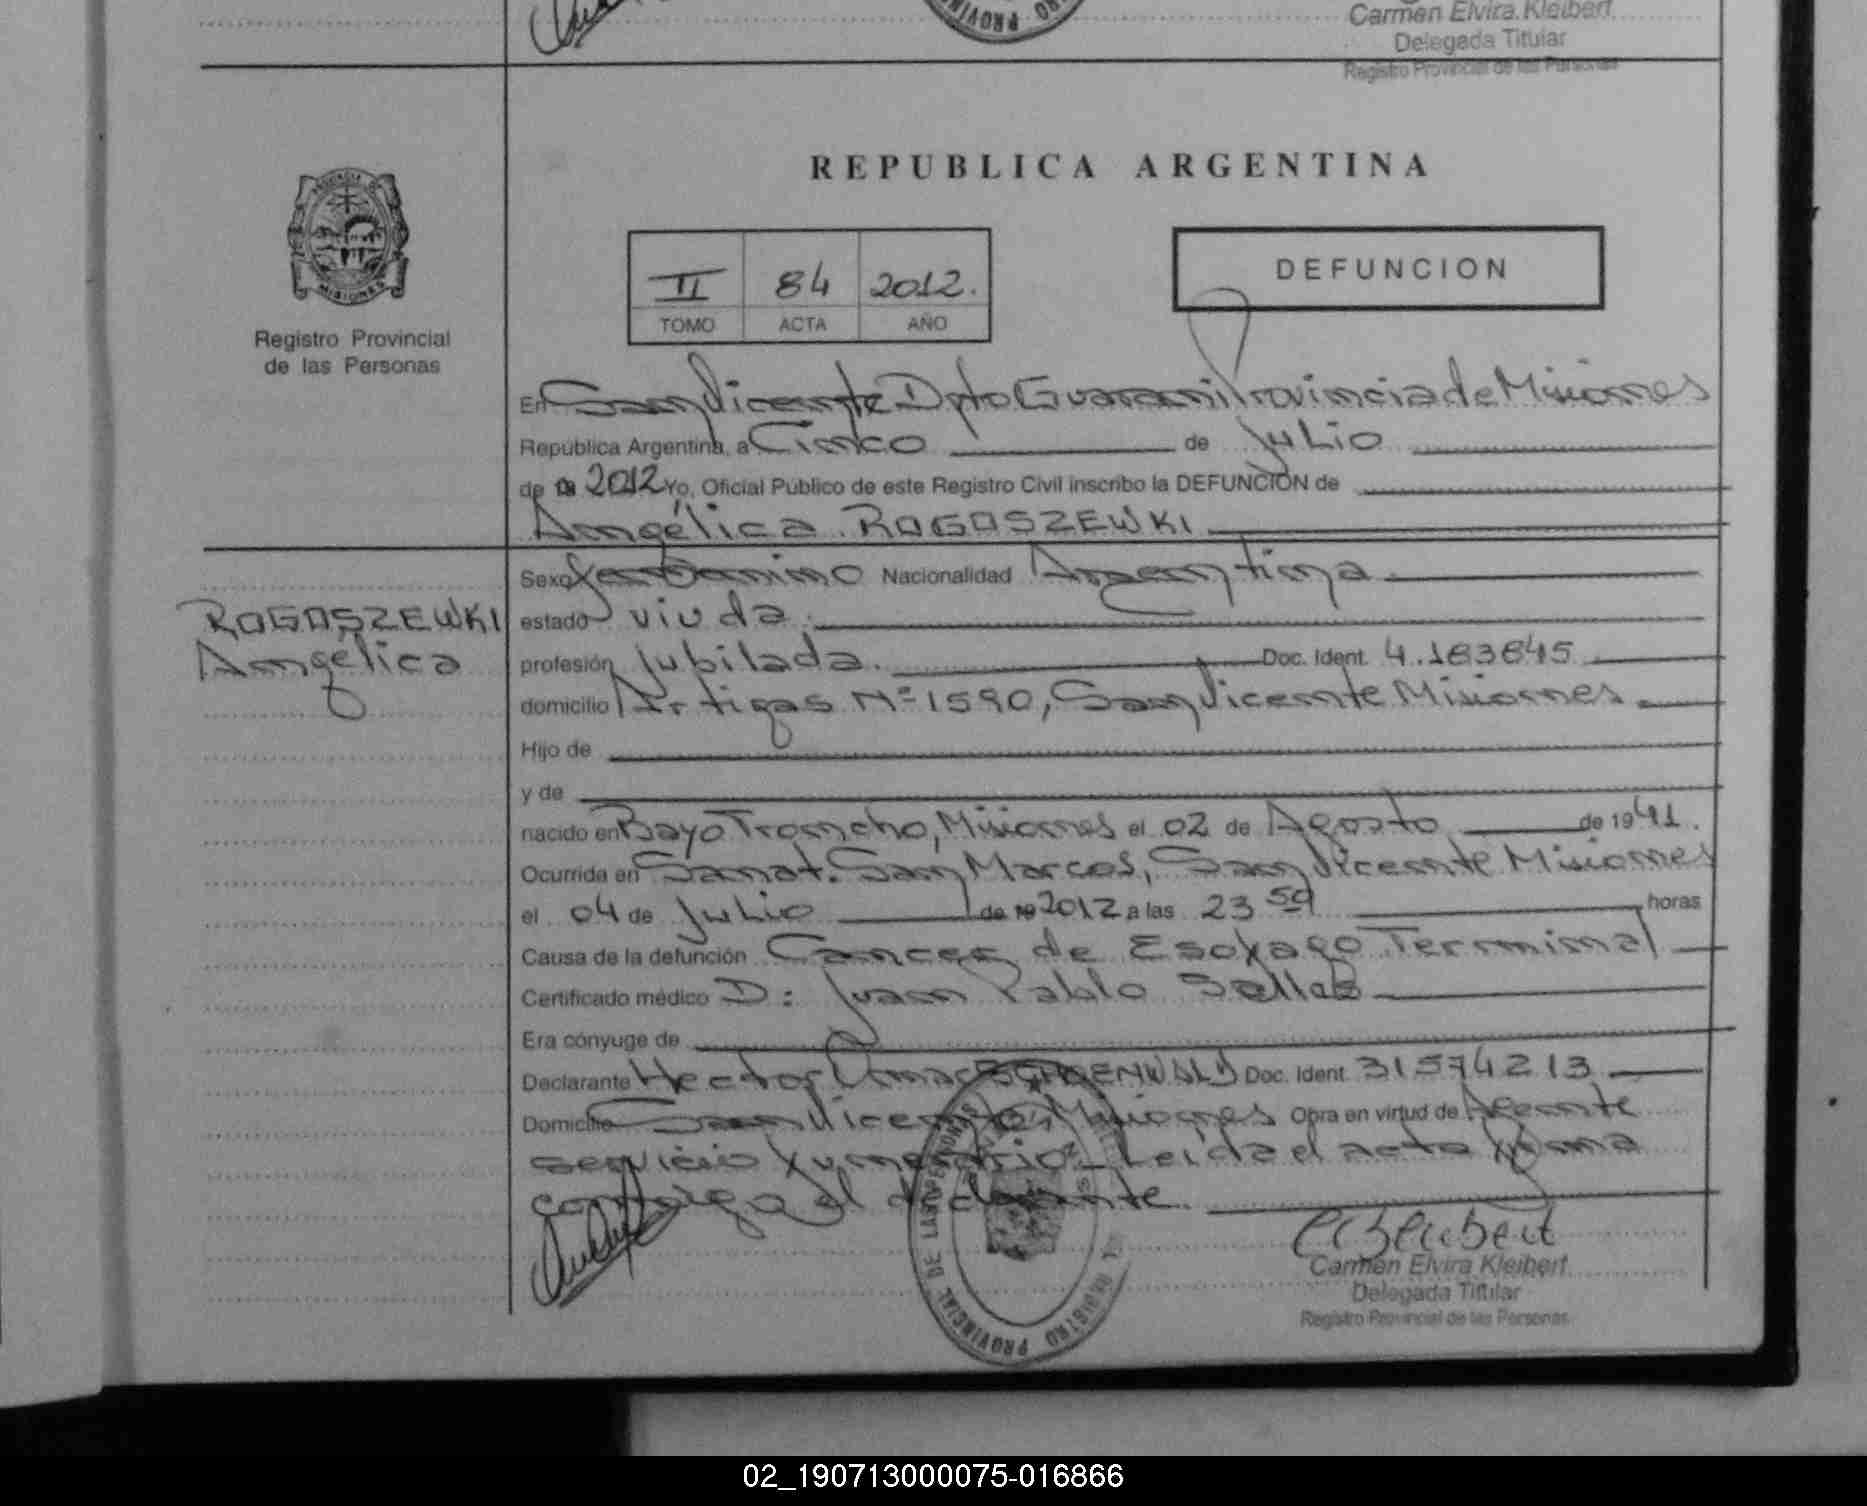 Carmen Elvira Kleibert
Delegada Titular
Registro Provincial de las Personas
REPUBLICA ARGENTINA
II 84 2012.
TOMO ACTA AÑO
DEFUNCION
PROVINCIA DE
MISIONES
Registro Provincial
de las Personas
En San Vicente Dpto Guarani Provincia de Misiones
República Argentina, a Cinco de Julio
de 19 2012 Yo, Oficial Público de este Registro Civil inscribo la DEFUNCION de
Angélica ROGOSZEWKI
ROGOSZEWKI
Angélica
Sexo femenino Nacionalidad Argentina
estado viuda
profesión Jubilada. Doc. Ident. 4.183645
domicilio Artigas Nº 1590, San Vicente Misiones
Hijo de
y de
nacido en Bayo Troncho, Misiones el 02 de Agosto de 1941.
Ocurrida en Sanat. San Marcos, San Vicente Misiones
el 04 de Julio de 19 2012 a las 23 59 horas
Causa de la defunción Cancer de Esofago Terminal
Certificado médico D: Juan Pablo
Era cónyuge de
Declarante Hector Omar SCHOENWALD Doc. Ident. 31574213
Domicilio San Vicente, Misiones Obra en virtud de Agente
servicio funerario - Leida el acta firma
conmigo el declarante.
REGISTRO PROVINCIAL DE LAS PERSONAS
Carmen Elvira Kleibert
Delegada Titular
Registro Provincial de las Personas
02_190713000075-016866